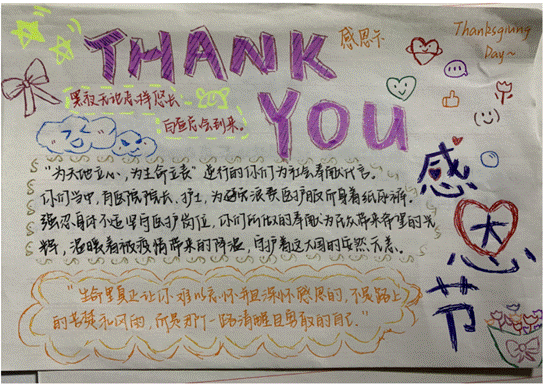 THANK
YOU
感恩卡
Thanksgiving
Day~
黑夜无论怎样悠长,
白昼总会到来。
感
恩
节
"为天地立心,为生命立表" 逆行的你们为社会奉献代言。
你们当中,有医院院长、护士,为避免浪费医护服而身着纸尿裤。
强忍身体不适坚守医护岗位,你们所做的奉献为民众带来希望的光
辉,温暖着被疫情带来的降温,守护着这大国的
"生命里真正让你难以忘怀并且深怀感恩的,不是路上
的苦楚和风雨,而是那个一路清醒且勇敢的自己"